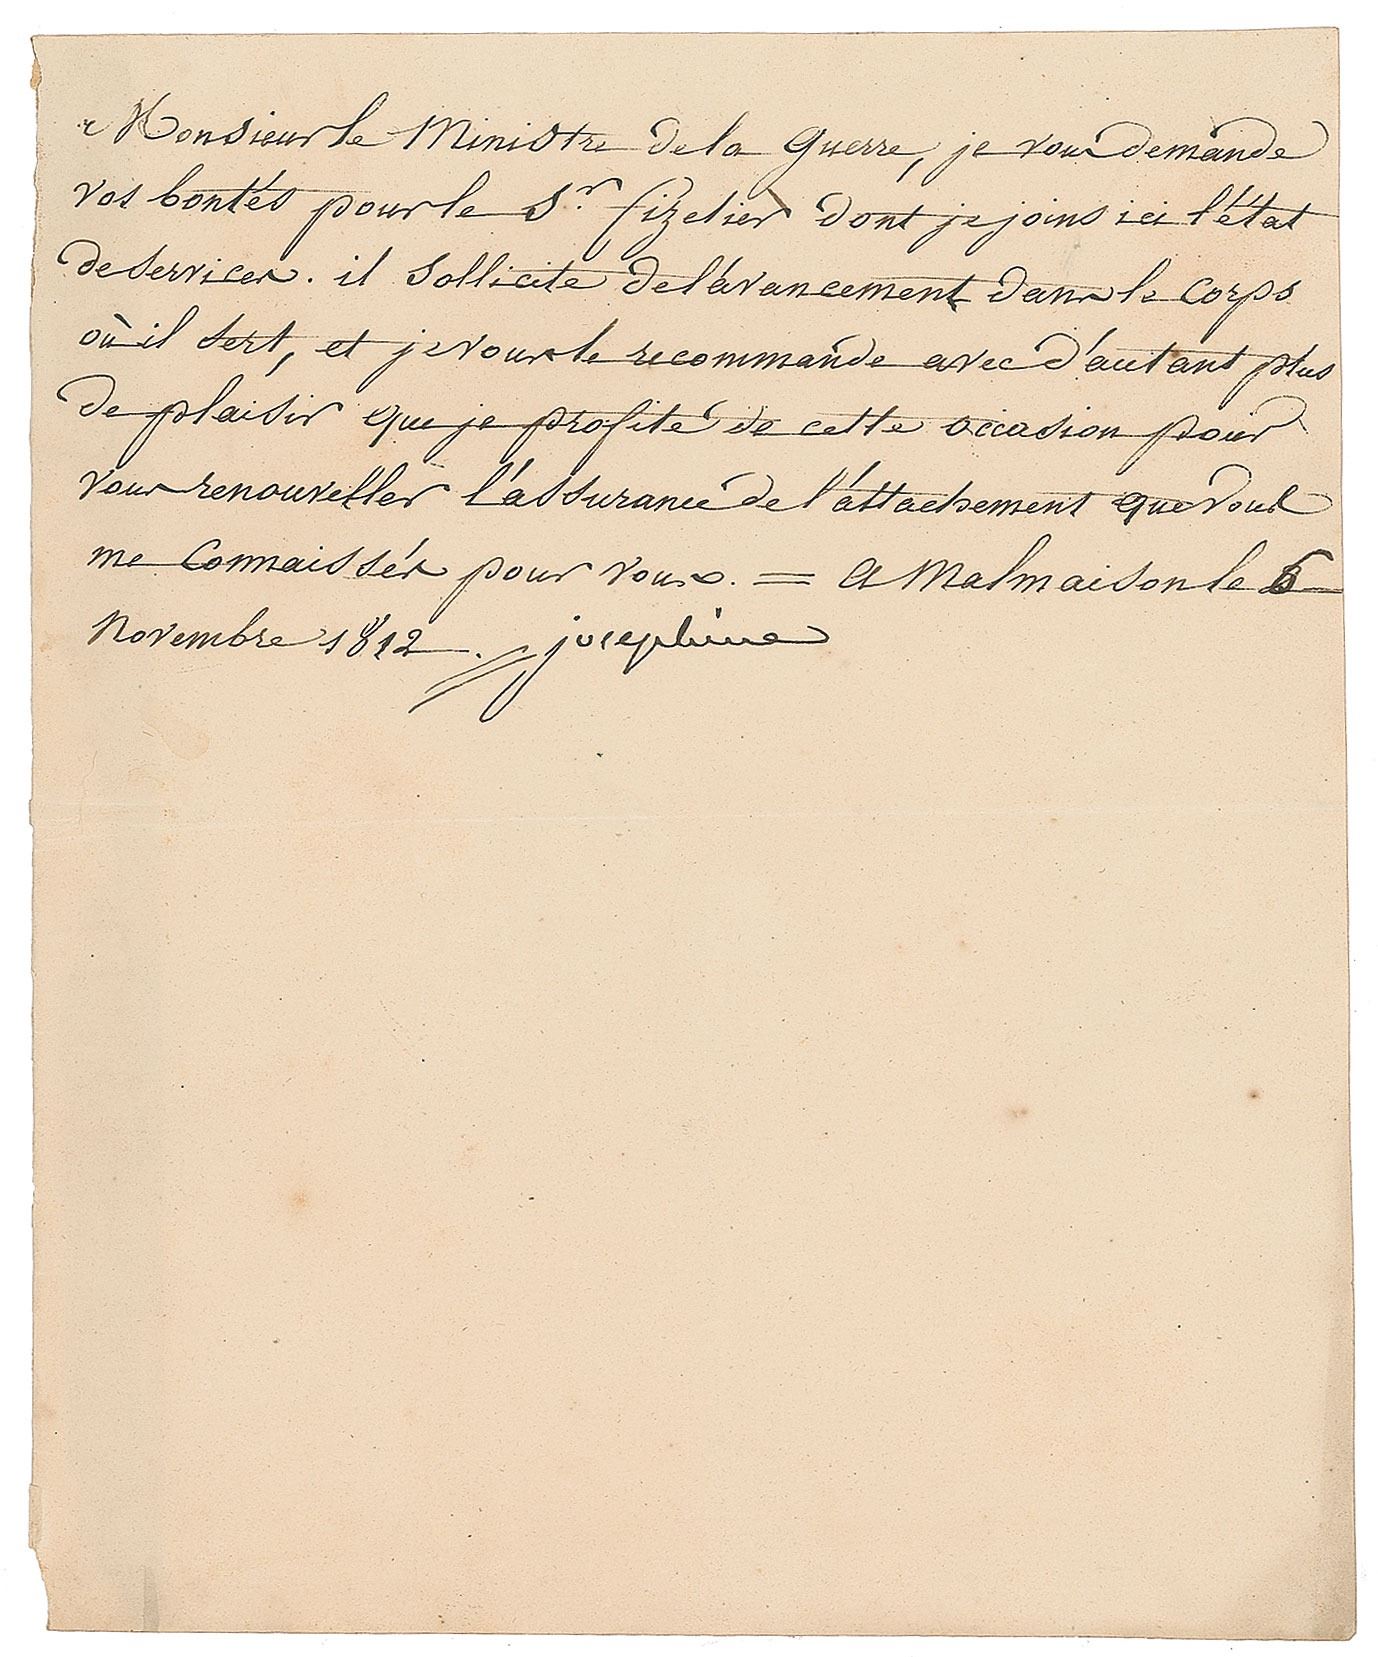 Monsieur le Ministre de la Guerre, je vous demande
vos bontés pour le Sr. fizelier dont je joins ici l'état
de services. il Sollicite de l'avancement dans le Corps
où il Sert, et je vous le recommande avec d'autant plus
de plaisir que je profite de cette occasion pour
vous renouveller l'assurance de l'attachement que vous
me Connaissés pour vous. = A Malmaison le
Novembre 1812. josephine